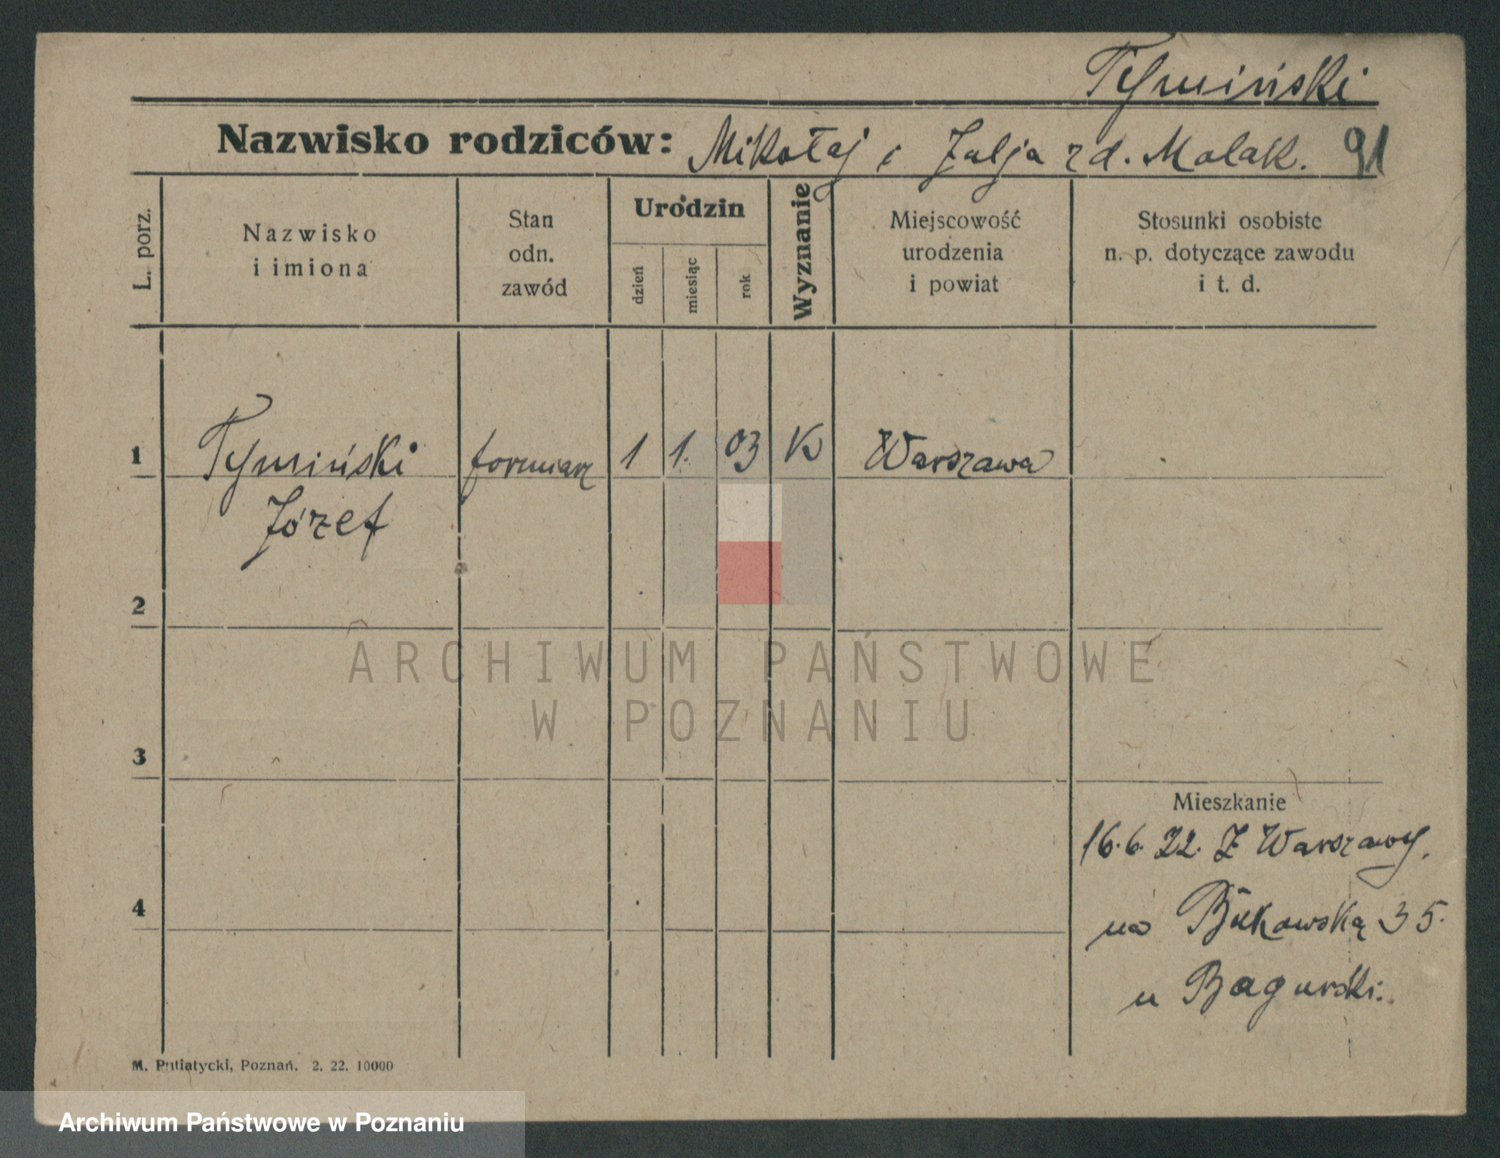 Tymiński
Nazwisko rodziców: Mikołaj i Julja zd. Molak. 91
L. porz.
Nazwisko
i imiona
Stan
odn.
zawód
Urodzin
dzień
miesiąc
rok
Wyznanie
Miejscowość
urodzenia
i powiat
Stosunki osobiste
n. p. dotyczące zawodu
i t. d.
1 Tymiński formiarz 1 1. 03 K Warszawa
Józef
2
ARCHIWUM PAŃSTWOWE
W POZNANIU
3
Mieszkanie
16.6.22. Z Warszawy.
4
na Bukowską 35.
u Bagurski.
M. Putiatycki, Poznań. 2. 22. 10000
Archiwum Państwowe w Poznaniu